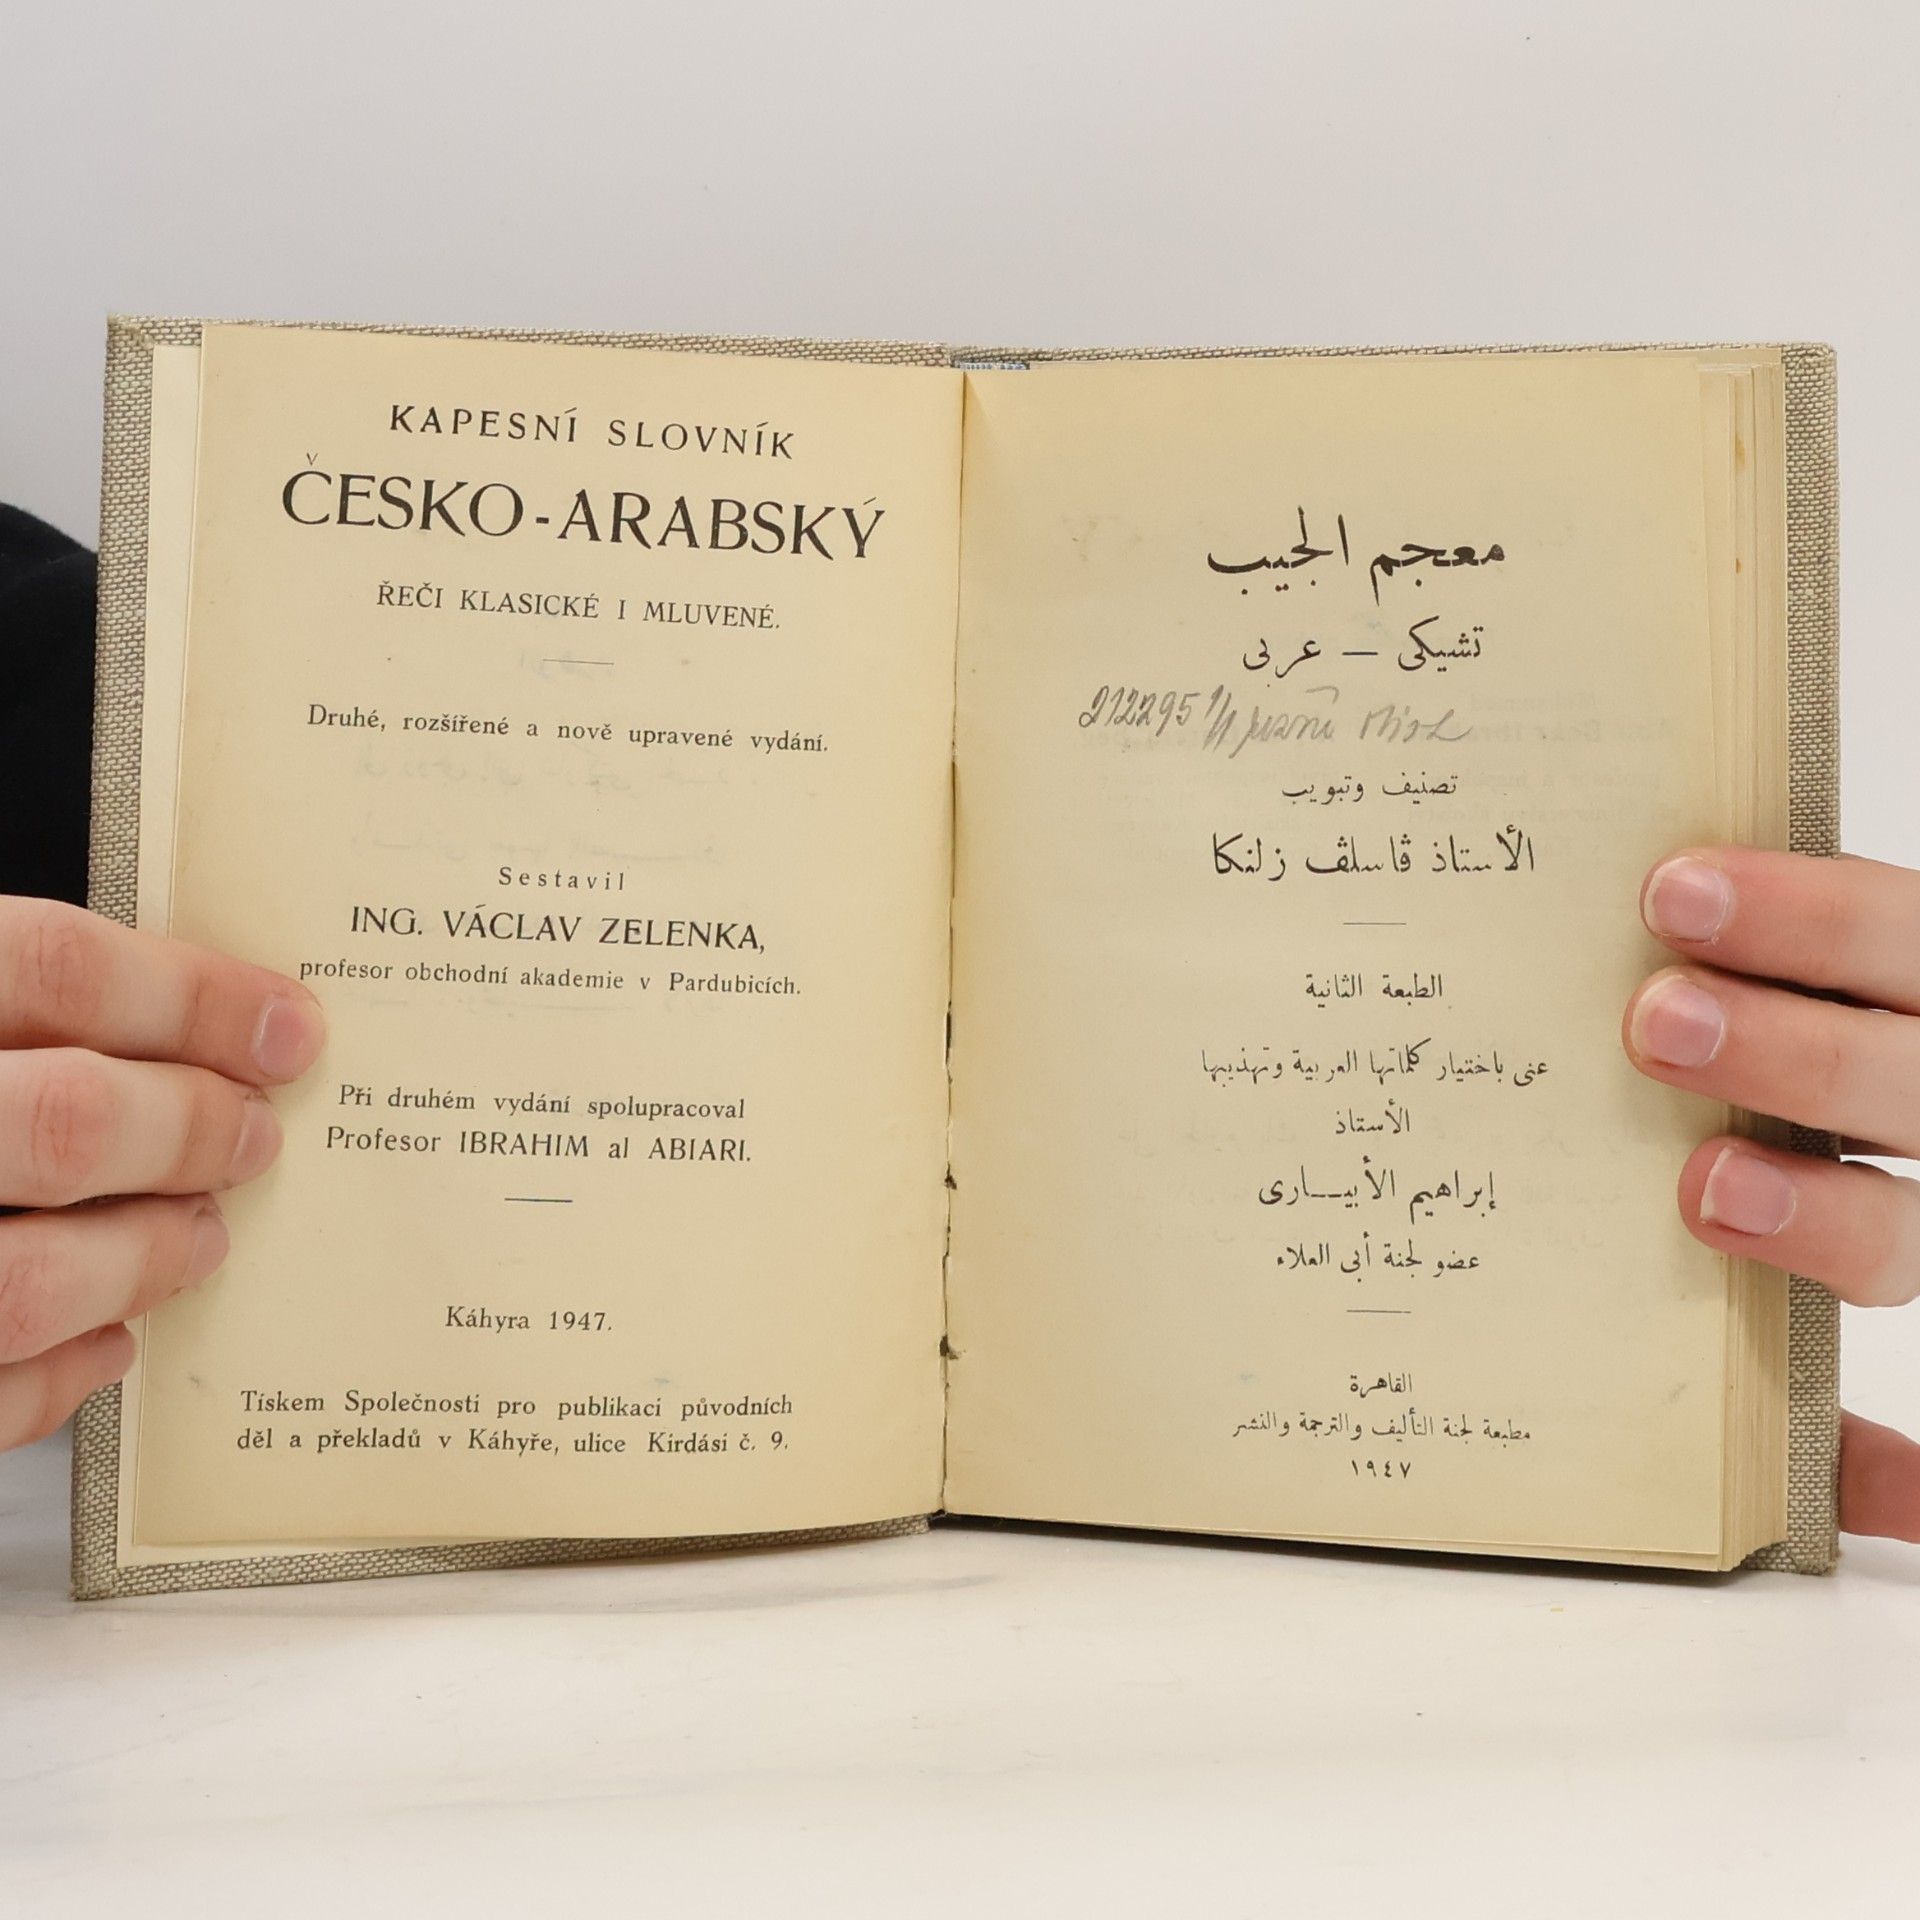 KAPESNÍ SLOVNÍK
ČESKO-ARABSKÝ
ŘEČI KLASICKÉ I MLUVENÉ.
Druhé, rozšířené a nově upravené vydání.
Sestavil
ING. VÁCLAV ZELENKA,
profesor obchodní akademie v Pardubicích.
Při druhém vydání spolupracoval
Profesor IBRAHIM al ABIARI.
Káhyra 1947.
Tiskem Společnosti pro publikaci původních
děl a překladů v Káhyře, ulice Kirdási č. 9.
معجم الجيب
تشيكى — عربى
212295
تصنيف وتبويب
الأستاذ ڤاسلڤ زلنكا
الطبعة الثانية
عنى باختيار كلماتها العربية وتهذيبها
الأستاذ
إبراهيم الأبيــارى
عضو لجنة أبى العلاء
القاهرة
مطبعة لجنة التأليف والترجمة والنشر
١٩٤٧